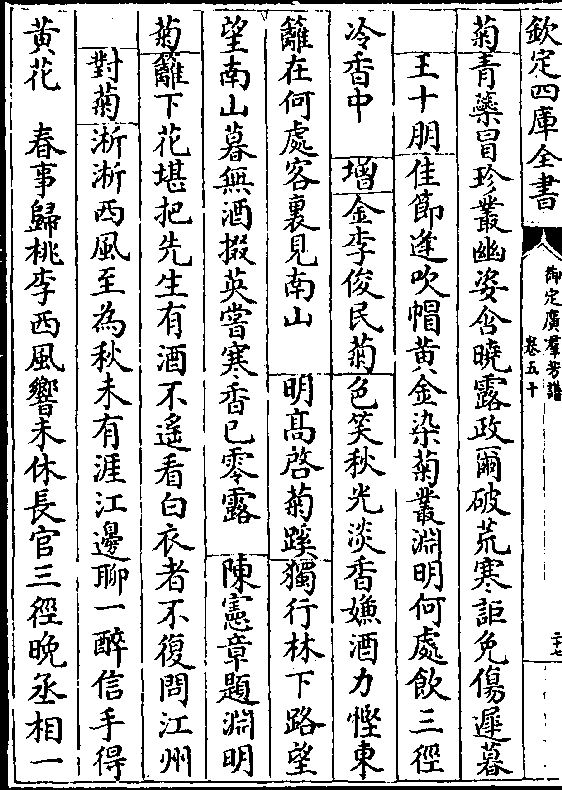 欽定四庫全書
御定廣羣芳譜
卷五十
二十七
菊青蘂冒珍叢幽姿含曉露政爾破荒寒詎免傷遲暮
王十朋佳節逢吹帽黃金染菊叢淵明何處飲三徑
冷香中 增金李俊民菊色笑秋光淡香嫌酒力慳東
籬在何處客裏見南山 明高啓菊蹊獨行林下路望
望南山暮無酒掇英嘗寒香已零露 陳憲章題淵明
菊籬下花堪把先生有酒不遙看白衣者不復問江州
對菊淅淅西風至為秋未有涯江邊聊一醉信手得
黃花 春事歸桃李西風響未休長官三徑晚丞相一